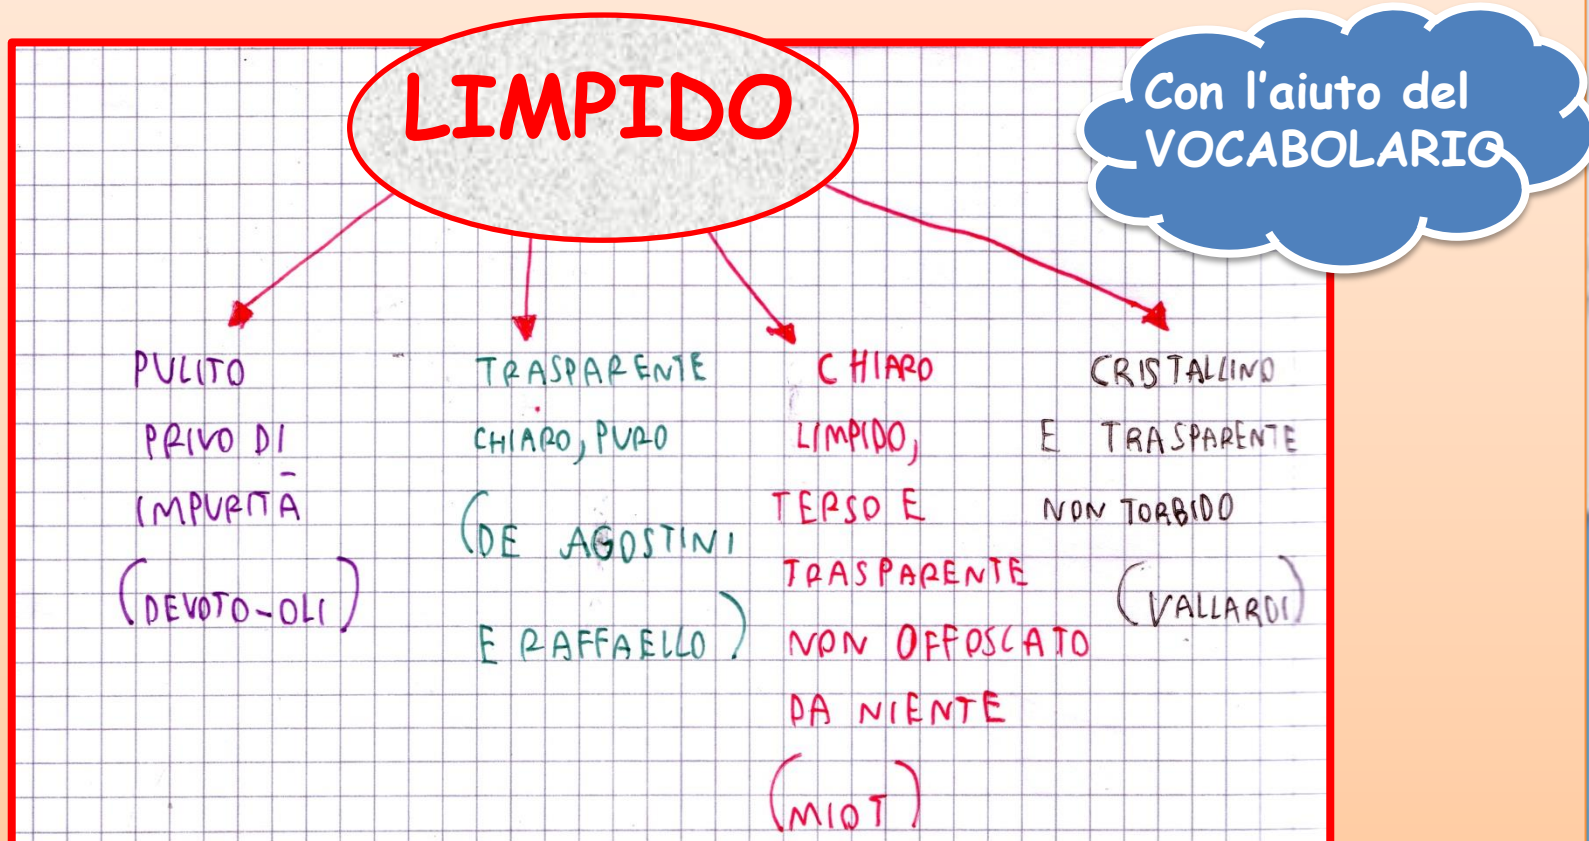 LIMPIDO
Con l'aiuto del
VOCABOLARIO
PULITO
PRIVO DI
IMPURITÀ
(DEVOTO-OLI)
TRASPARENTE
CHIARO, PURO
(DE AGOSTINI
E RAFFAELLO)
CHIARO
LIMPIDO,
TERSO E
TRASPARENTE
NON OFFOSCATO
DA NIENTE
(MIOT)
CRISTALLINO
E TRASPARENTE
NON TORBIDO
(VALLARDI)